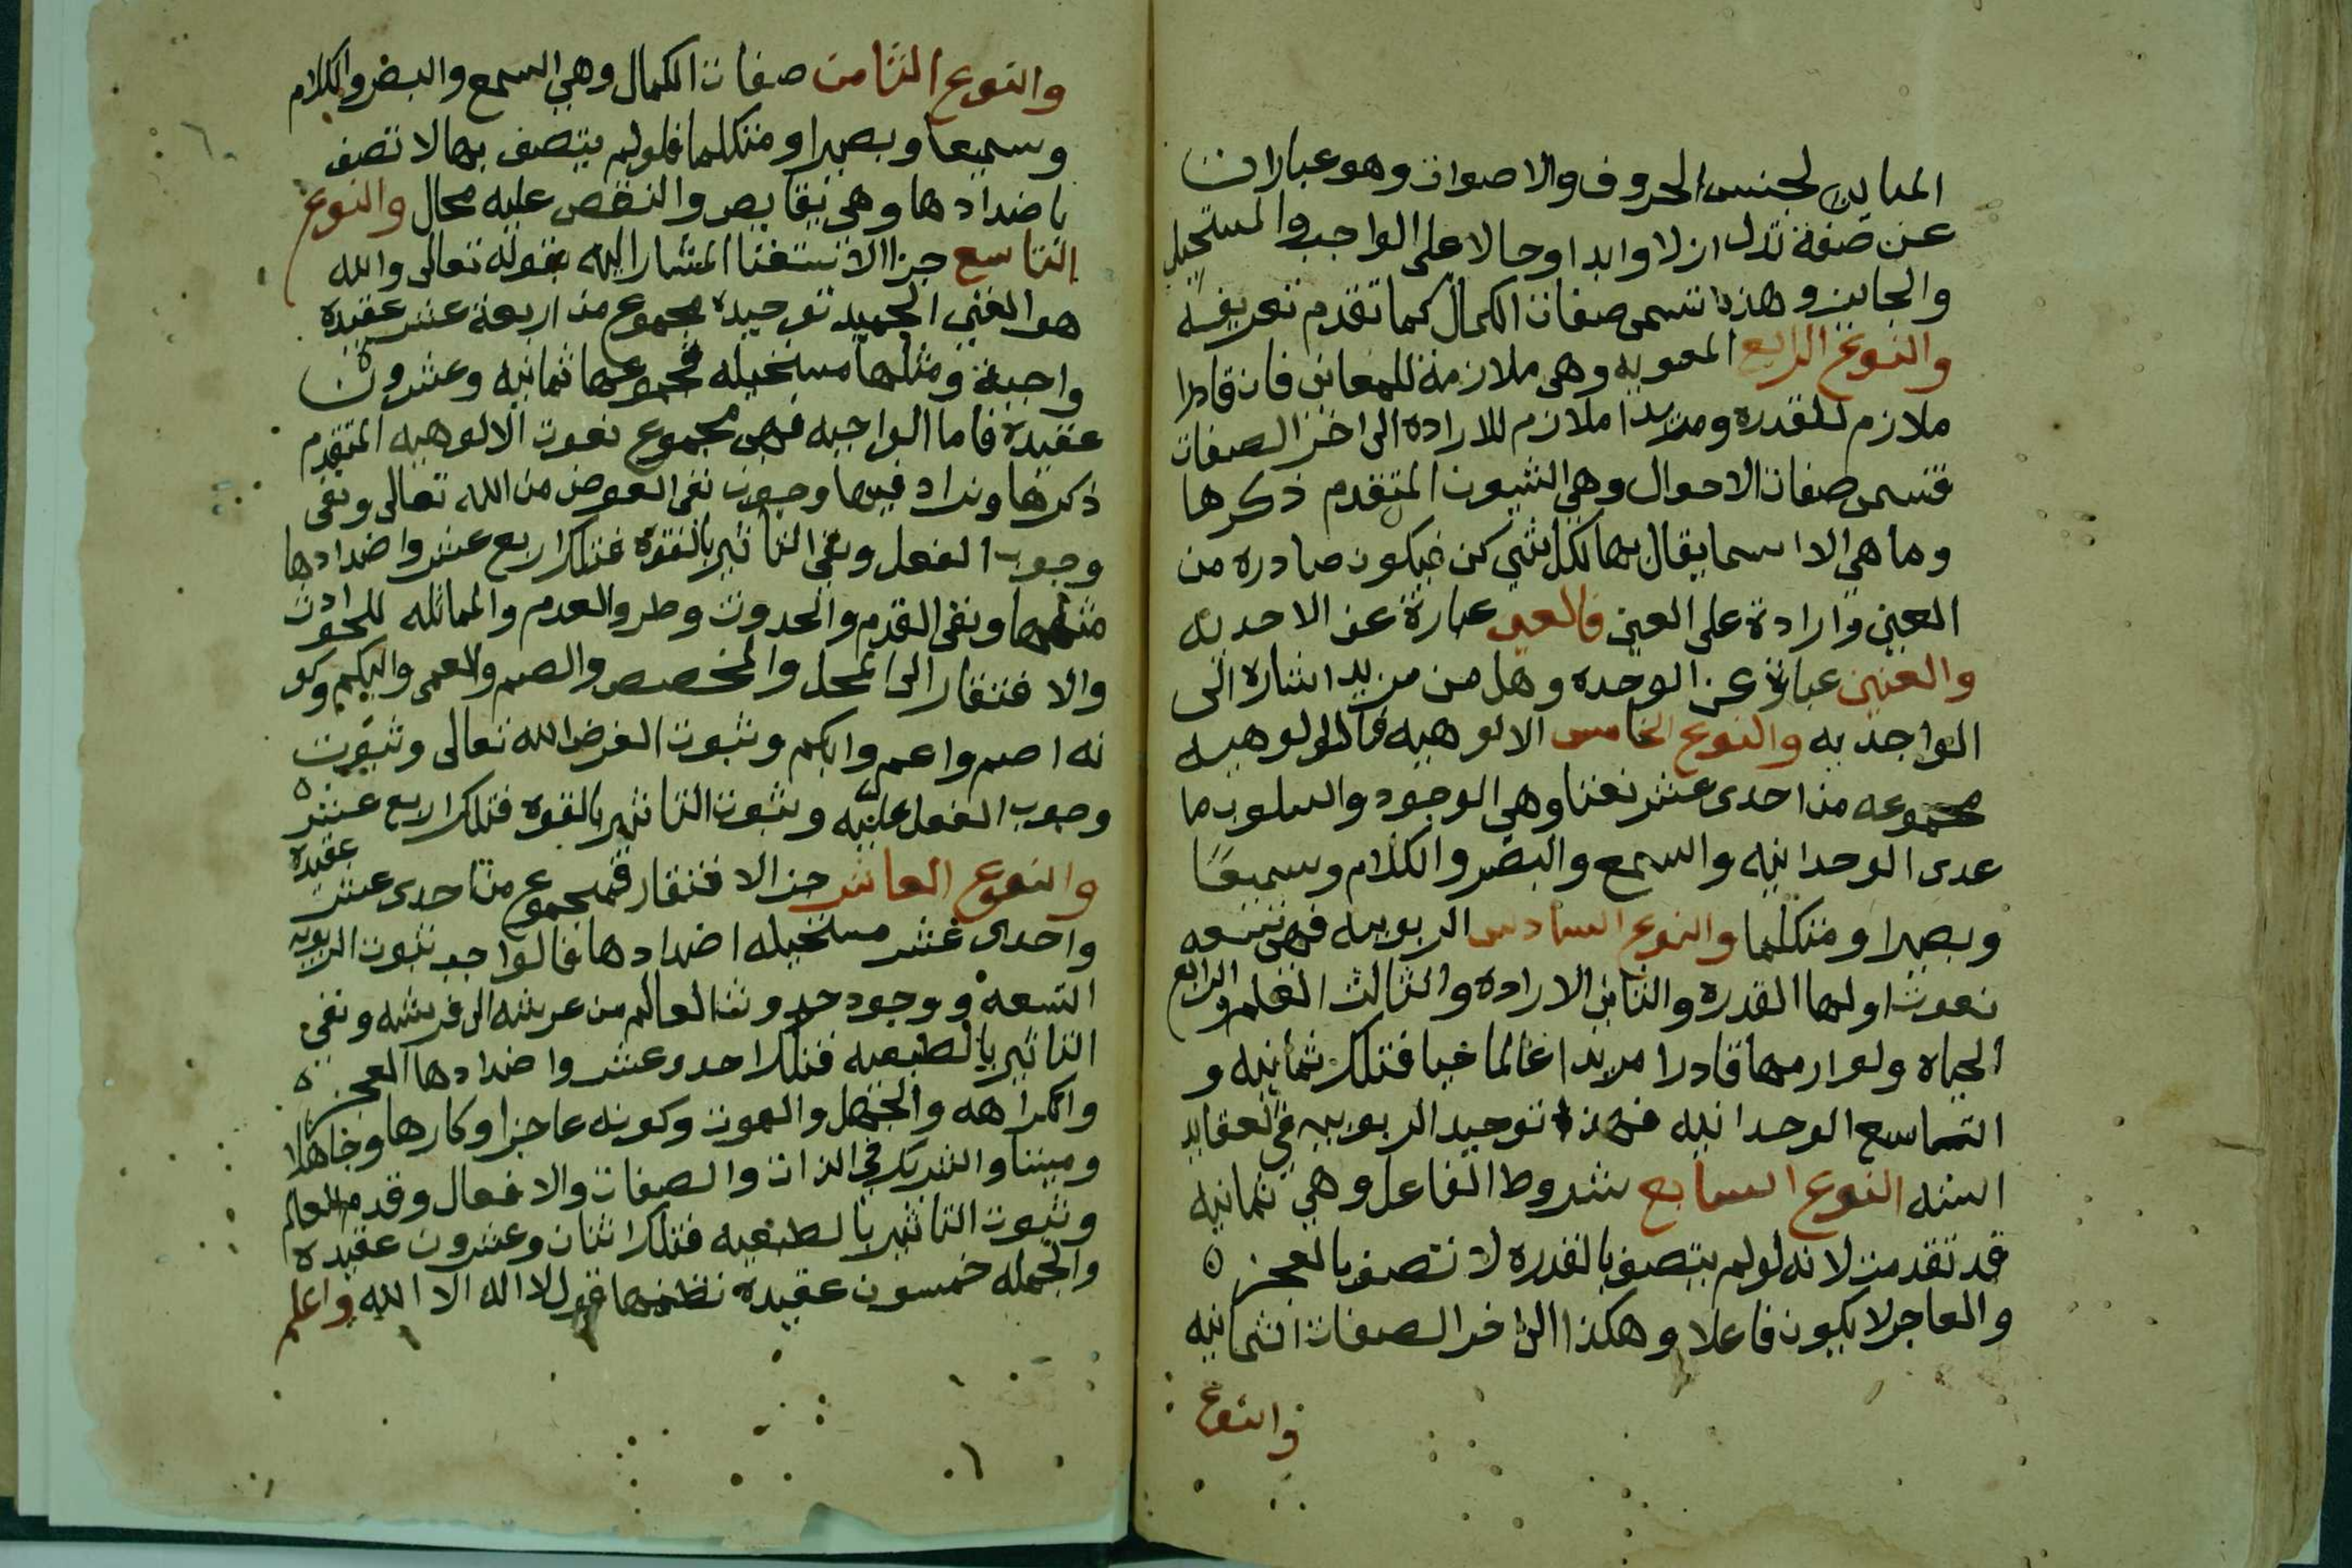 المباين لجنس الحروف والاصوات وهو عبارات
عن صفة تدل ازلا وابدا وحالا على الواجب والمستحيل
والجايز وهذه تسمى صفات الكمال كما تقدم تعريفه
والنوع الرابع المعنويه وهي ملازمة للمعاني فان قادرا
ملازم للقدره ومريدا ملازم للاراده الى اخر الصفات
فتسمى صفات الاحوال وهي الثبوت المتقدم ذكرها
وما هي الا اسما يقال بها لكل شي كن فيكون صادره من
العين وارادة على العين فالعين عبارة عن الاحديه
والعنين عبارة عن الوحده وهل من مزيد اشاره الى
الواحديه والنوع الخامس الالوهيه فالالوهيه
مجموعه من احدى عشر نعتا وهي الوجود والسلوب ما
عدى الوحدانيه والسمع والبصر والكلام وسميعا
وبصيرا ومتكلما والنوع السادس الربوبيه فهي تسعه
نعوت اولها القدره والثاني الاراده والثالث العلم والرابع
الحياه ولوازمها قادرا مريدا عالما حيا فتلك ثمانيه و
التاسع الوحدانيه فهذا توحيد الربوبيه في العقايد
السته النوع السابع شروط الفاعل وهي ثمانيه
قد تقدمن لانه لو لم يتصف بالقدره لاتصف بالعجز ٥
والعاجز لا يكون فاعلا وهكذا الى اخر الصفات الثمانيه
والنوع
والنوع الثامن صفات الكمال وهي السمع والبصر والكلام
وسميعا وبصيرا ومتكلما فلو لم يتصف بها لا تصف
باضدادها وهي نقايص والنقص عليه محال والنوع
التاسع جزا الاستغنا المشار اليه بقوله تعالى والله
هو الغني الحميد توحيده مجموع من اربعة عشر عقيدة
واجبة ومثلها مستحيله فمجموعها ثمانيه وعشرون
عقيدة فاما الواجبه فهي مجموع نعوت الالوهيه المتقدم
ذكرها ونزاد فيها وجوب نفي الغرض من الله تعالى ونفي
وجوب الفعل ونفي التاثير بالقوة فتلك اربع عشر واضدادها
مثلها ونفي القدم والحدوث وطرو العدم والمماثله للحوادث
والافتقار الى المحل والمخصص والصمم والعمى والبكم وكو
نه اصم واعمى وابكم وثبوت الغرض لله تعالى وثبوت
وجوب الفعل عليه وثبوت التاثير بالقوه فتلك اربع عشر ٥
عقيدة
والنوع العاشر جزا الافتقار فمجموع من احدى عشر
واحدى عشر مستحيله اضدادها فالواجب ثبوت الربوبيه
التسعه ووجود حدوث العالم من عرشه الى فرشه ونفي
التاثير بالطبعيه فتلك احد وعشر واضدادها العجز ٥
والكراهه والجهل والموت وكونه عاجزا وكارها وجاهلا
وميتا والشريك في الذات والصفات والافعال وقدم العالم
وثبوت التاثير بالطبعيه فتلك اثنان وعشرون عقيدة
والجمله خمسون عقيدة تظمنها قول لا اله الا الله واعلم